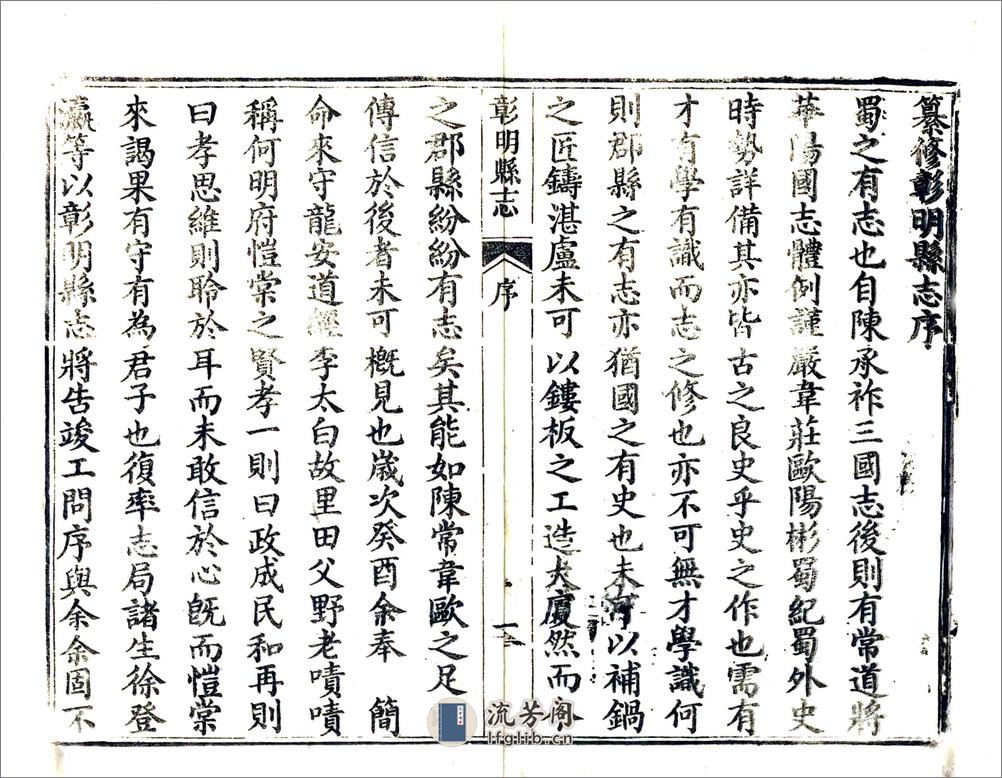 纂修彰明縣志序
蜀之有志也自陳承祚三國志後則有常道將
華陽國志體例謹嚴韋莊歐陽彬蜀紀蜀外史
時勢詳備其亦皆古之良史乎史之作也需有
才有學有識而志之修也亦不可無才學識何
則郡縣之有志亦猶國之有史也未可以補鍋
之匠鑄湛盧未可以鏤板之工造大廈然而
彰明縣志
序
一
之郡縣紛紛有志矣其能如陳常韋歐之足
傳信於後者未可概見也嵗次癸酉余奉 簡
命來守龍安道經李太白故里田父野老嘖嘖
稱何明府愷棠之賢孝一則曰政成民和再則
曰孝思維則聆於耳而未敢信於心旣而愷棠
來謁果有守有為君子也復率志局諸生徐登
瀛等以彰明縣志將告竣工問序與余余固不
流芳阁
lfglib.cn